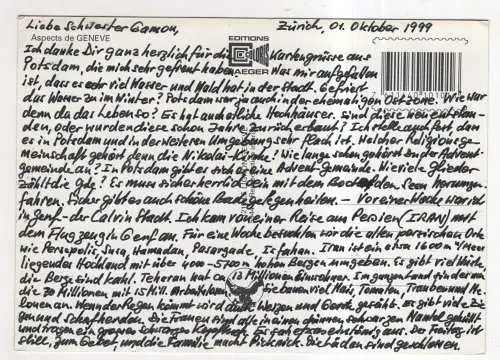 Liebe Schwester Gamon,
Zürich, 01. Oktober 1999
Aspects de GENEVE
EDITIONS
JAEGER
Ich danke Dir ganz herzlich für die Kartengrüsse aus
Potsdam, die mich sehr gefreut haben. Was mir aufgefallen
ist, dass es sehr viel Wasser und Wald hat in der Stadt. Gefriert
das Wasser zu im Winter? Potsdam war ja auch in der ehemaligen Ostzone. Wie war
denn da das Leben so? Es hat auch etliche Hochhäuser. Sind diese neu entstan-
den, oder wurden diese schon Jahre zurück erbaut? Ich stelle auch fest dass
es in Potsdam und in der weiteren Umgebung sehr flach ist. Welcher Religionsge-
meinschaft gehört denn die Nikolai-Kirche? Wie lange schon gehörst Du der Advent-
gemeinde an? In Potsdam gibt es sicher eine Advent-Gemeinde. Wieviele Glieder
zählt die Gde? Es muss sicher herrlich sein mit dem Boot auf den Seen herumzu-
fahren. Sicher gibt es auch schöne Badegelegenheiten. - Vor einer Woche war ich
in Genf - der Calvin Stadt. Ich kam von einer Reise aus Persien (IRAN) mit
dem Flugzeug in Genf an. Für eine Woche besuchten wir die alten persischen Orte
wie Persepolis, Susa, Hamadan, Pasargade, Isfahan. Iran ist ein etwa 1600 m ü/Meer
liegendes Hochland mit 4000-5700 m hohen Bergen umgeben. Es gibt viel Wüste,
die Berge sind kahl. Teheran hat ca 12 Millionen Einwohner. Im ganzen Land sind es rund
die 70 Millionen mit 15 Mill. Arbeitslosen. Sie bauen viel Mais, Tomaten, Trauben und Me-
lonen an. Wenn der Regen kommt wird auch Weizen und Gerste gesäht. Es gibt viel Zie-
gen und Schafherden. Die Frauen sind alle in einen dünnen schwarzen Mantel gehüllt
und tragen ein grosses schwarzes Kopftuch. Der Freitag ist
still, zum Gebet und die Familie macht Picknick. Die Läden sind geschlossen.